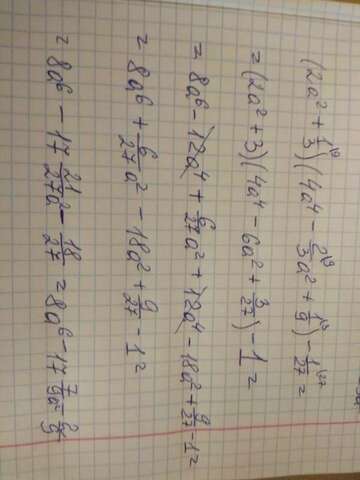 (2a² + 1/3)(4a⁴ - 2/3a² + 1/9) - 1/27 =
= (2a² + 3)(4a⁴ - 6a² + 3/27) - 1 =
= 8a⁶ - 12a⁴ + 6/27a² + 12a⁴ - 18a² + 9/27 - 1 =
= 8a⁶ + 6/27a² - 18a² + 9/27 - 1 =
= 8a⁶ - 17 21/27a² - 18/27 = 8a⁶ - 17 7/9a² - 2/9